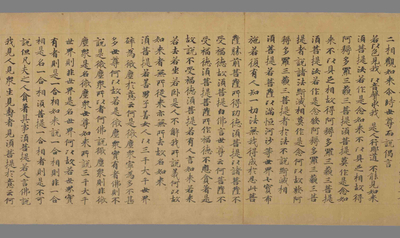 二相觀如來尒時世尊而說偈言
若以色見我 以音聲求我 是人行邪道 不能見如來
須菩提汝若作是念如來不以具足相故得
阿耨多羅三藐三菩提須菩提莫作是念如
來不以具足相故得阿耨多羅三藐三菩提
須菩提汝若作是念發阿耨多羅三藐三菩
提者說諸法斷滅相莫作是念何以故發阿
耨多羅三藐三菩提心者於法不說斷滅相
須菩提若菩薩以滿恒河沙等世界七寶布
施若復有人知一切法無我得成於忍此菩
薩勝前菩薩所得功德須菩提以諸菩薩不
受福德故須菩提白佛言世尊云何菩薩不
受福德須菩提菩薩所作福德不應貪著是
故說不受福德須菩提若有人言如來若來
若去若坐若臥是人不解我所說義何以故
如來者無所從來亦無所去故名如來
須菩提若善男子善女人以三千大千世界
碎為微塵於意云何是微塵眾寧為多不甚
多世尊何以故若是微塵眾實有者佛則不
說是微塵眾所以者何佛說微塵眾則非微
塵眾是名微塵眾世尊如來所說三千大千
世界則非世界是名世界何以故若世界實
有者則是一合相如來說一合相則非一合
相是名一合相須菩提一合相者則是不可
說但凡夫之人貪著其事須菩提若人言佛說
我見人見眾生見壽者見須菩提於意云何